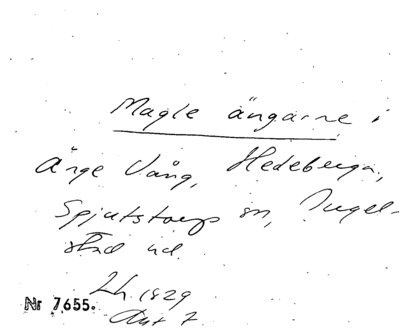 Magle ängarne i
Änge Vång, Hedeberga,
Spjutstorps sn, Ingel-
stad hd.
Lh. 1829
Akt 7
Nr 7655.